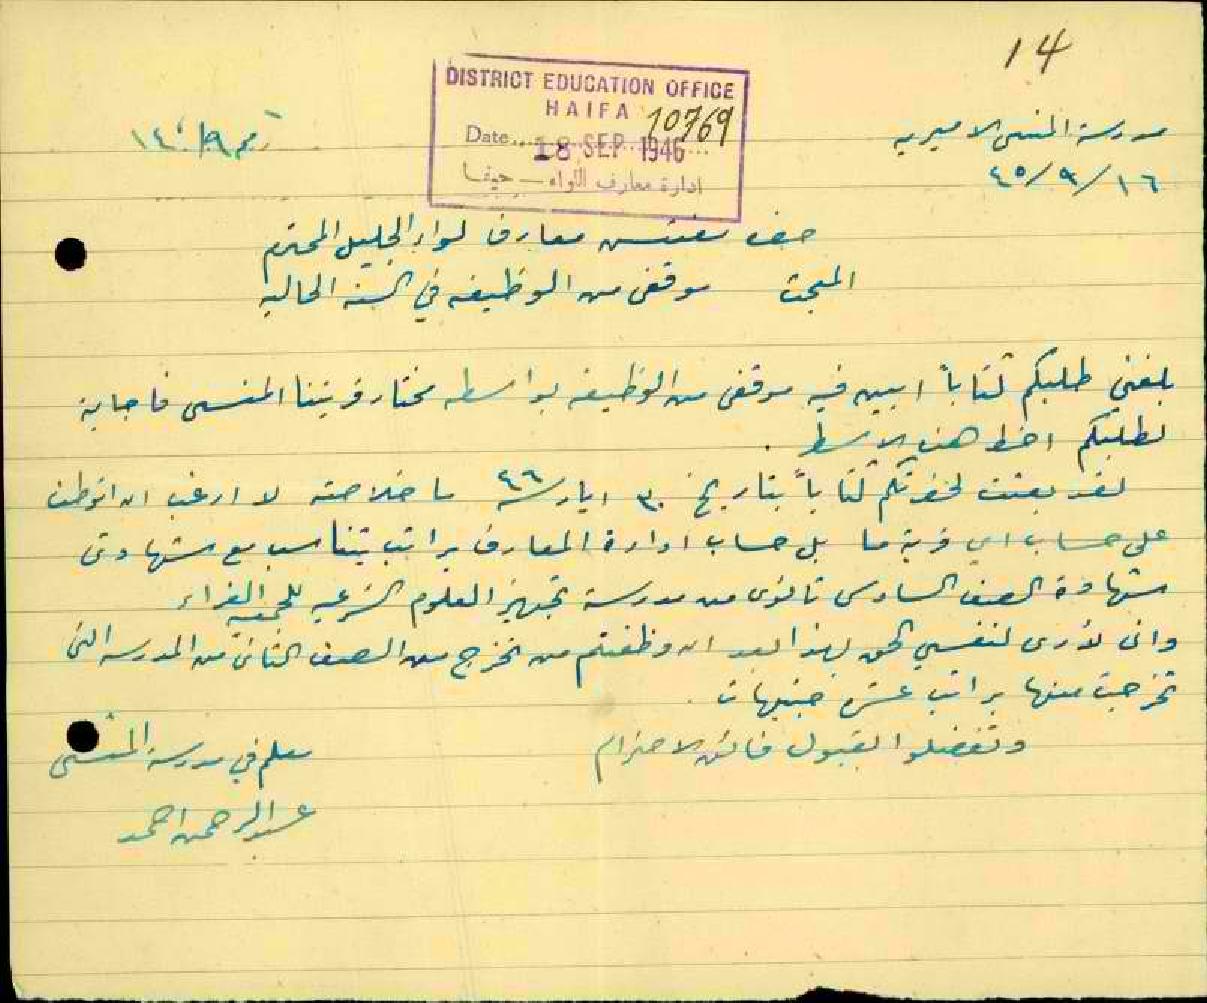 14
DISTRICT EDUCATION OFFICE
HAIFA
10769
Date 18 SEP 1946
ادارة معارف اللواء – حيفا
مدرسة المنسي الاميريه
١٦/٩/٤٥
مفتش معارف لواء الجليل المحترم
المبحث موقفي من الوظيفه في السنه الحاليه
بلغني طلبكم كتاباً ابين فيه موقفي من الوظيفه بواسطه مختار قريتنا المنسي فاجابة
لطلبكم اخط هذه الاسطر .
لقد بعثت لحضرتكم كتاباً بتاريخ ٣٠ ايار سنة ٤٦ ما خلاصته لا ارغب ان اتوظف
على حساب اي قرية ما بل حساب ادارة المعارف براتب يتناسب مع شهادتي
شهادة الصف السادس ثانوي من مدرسة تجهيز العلوم الشرعيه
واني لأرى لنفسي الحق بهذا بعد ان وظفتم من تخرج من الصف الثاني من المدرسه التي
تخرجت منها براتب عشرة جنيهات .
وتفضلوا بقبول فائق الاحترام
معلم في مدرسة المنسي
عبد الرحمن احمد